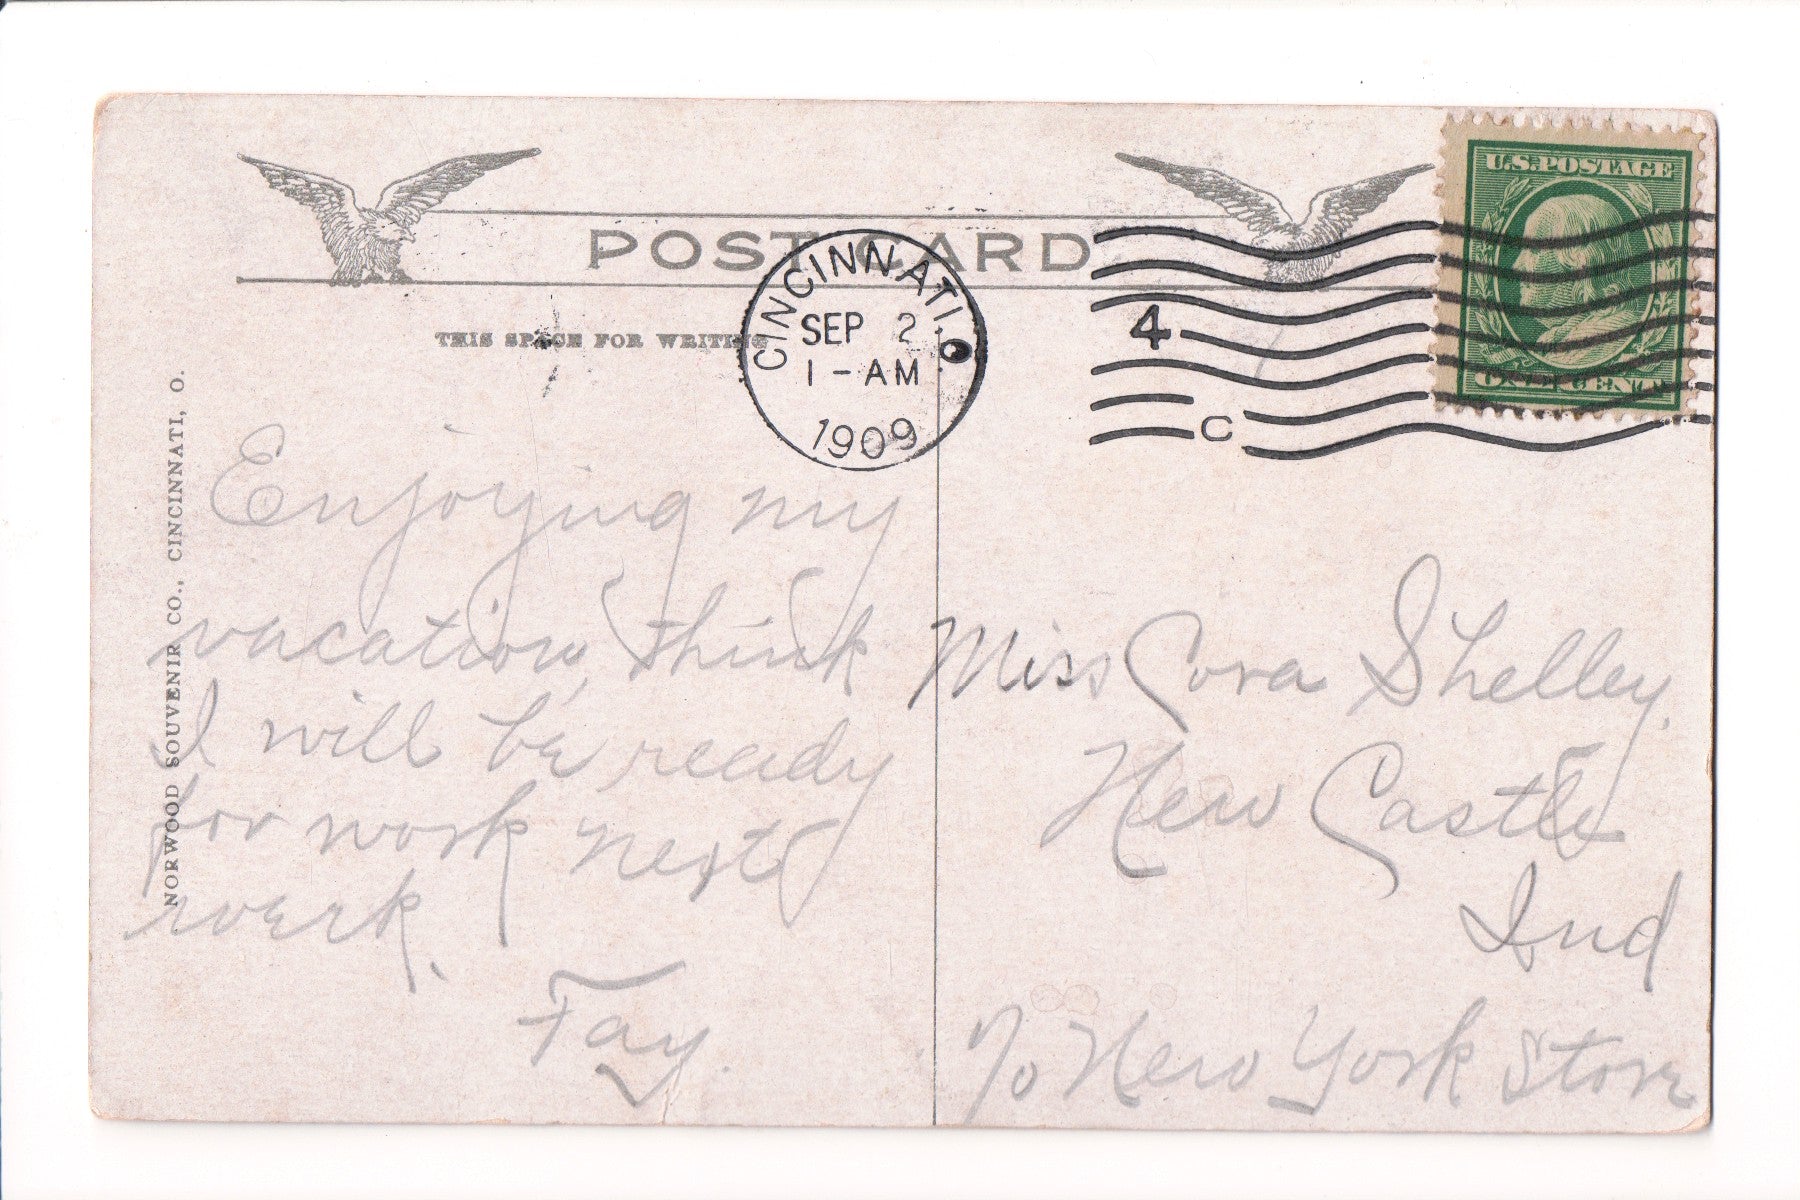 U.S. POSTAGE
ONE CENT
POST CARD
THIS SPACE FOR WRITING
CINCINNATI, O.
SEP 2
1 - AM
1909
4
C
NORWOOD SOUVENIR CO., CINCINNATI, O.
Enjoying my
vacation, think
I will be ready
for work next
week.
Fay.
Miss Cora Shelley,
New Castle
Ind
c/o New York Store